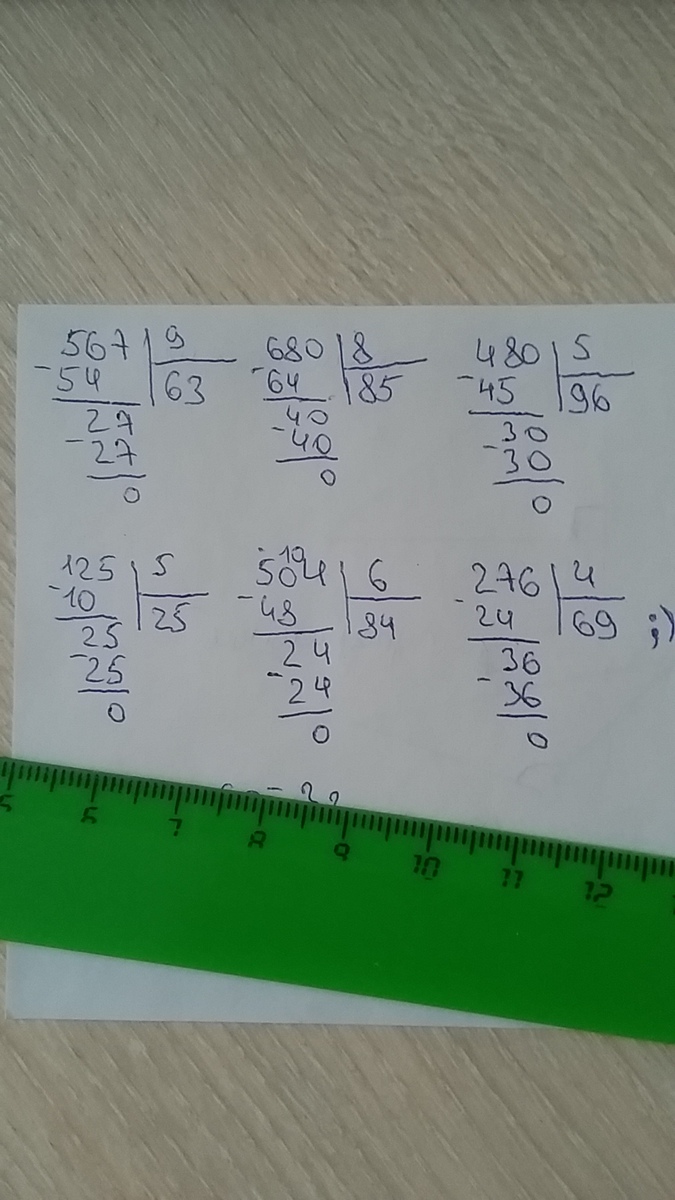 567 9 680 8 480 5
-54 63 -64 85 -45 96
27 40 30
-27 -40 -30
0 0 0
10
125 5 504 6 276 4
-10 25 -48 84 -24 69 ;)
25 24 36
-25 -24 -36
0 0 0
5 6 7 8 9 10 11 12